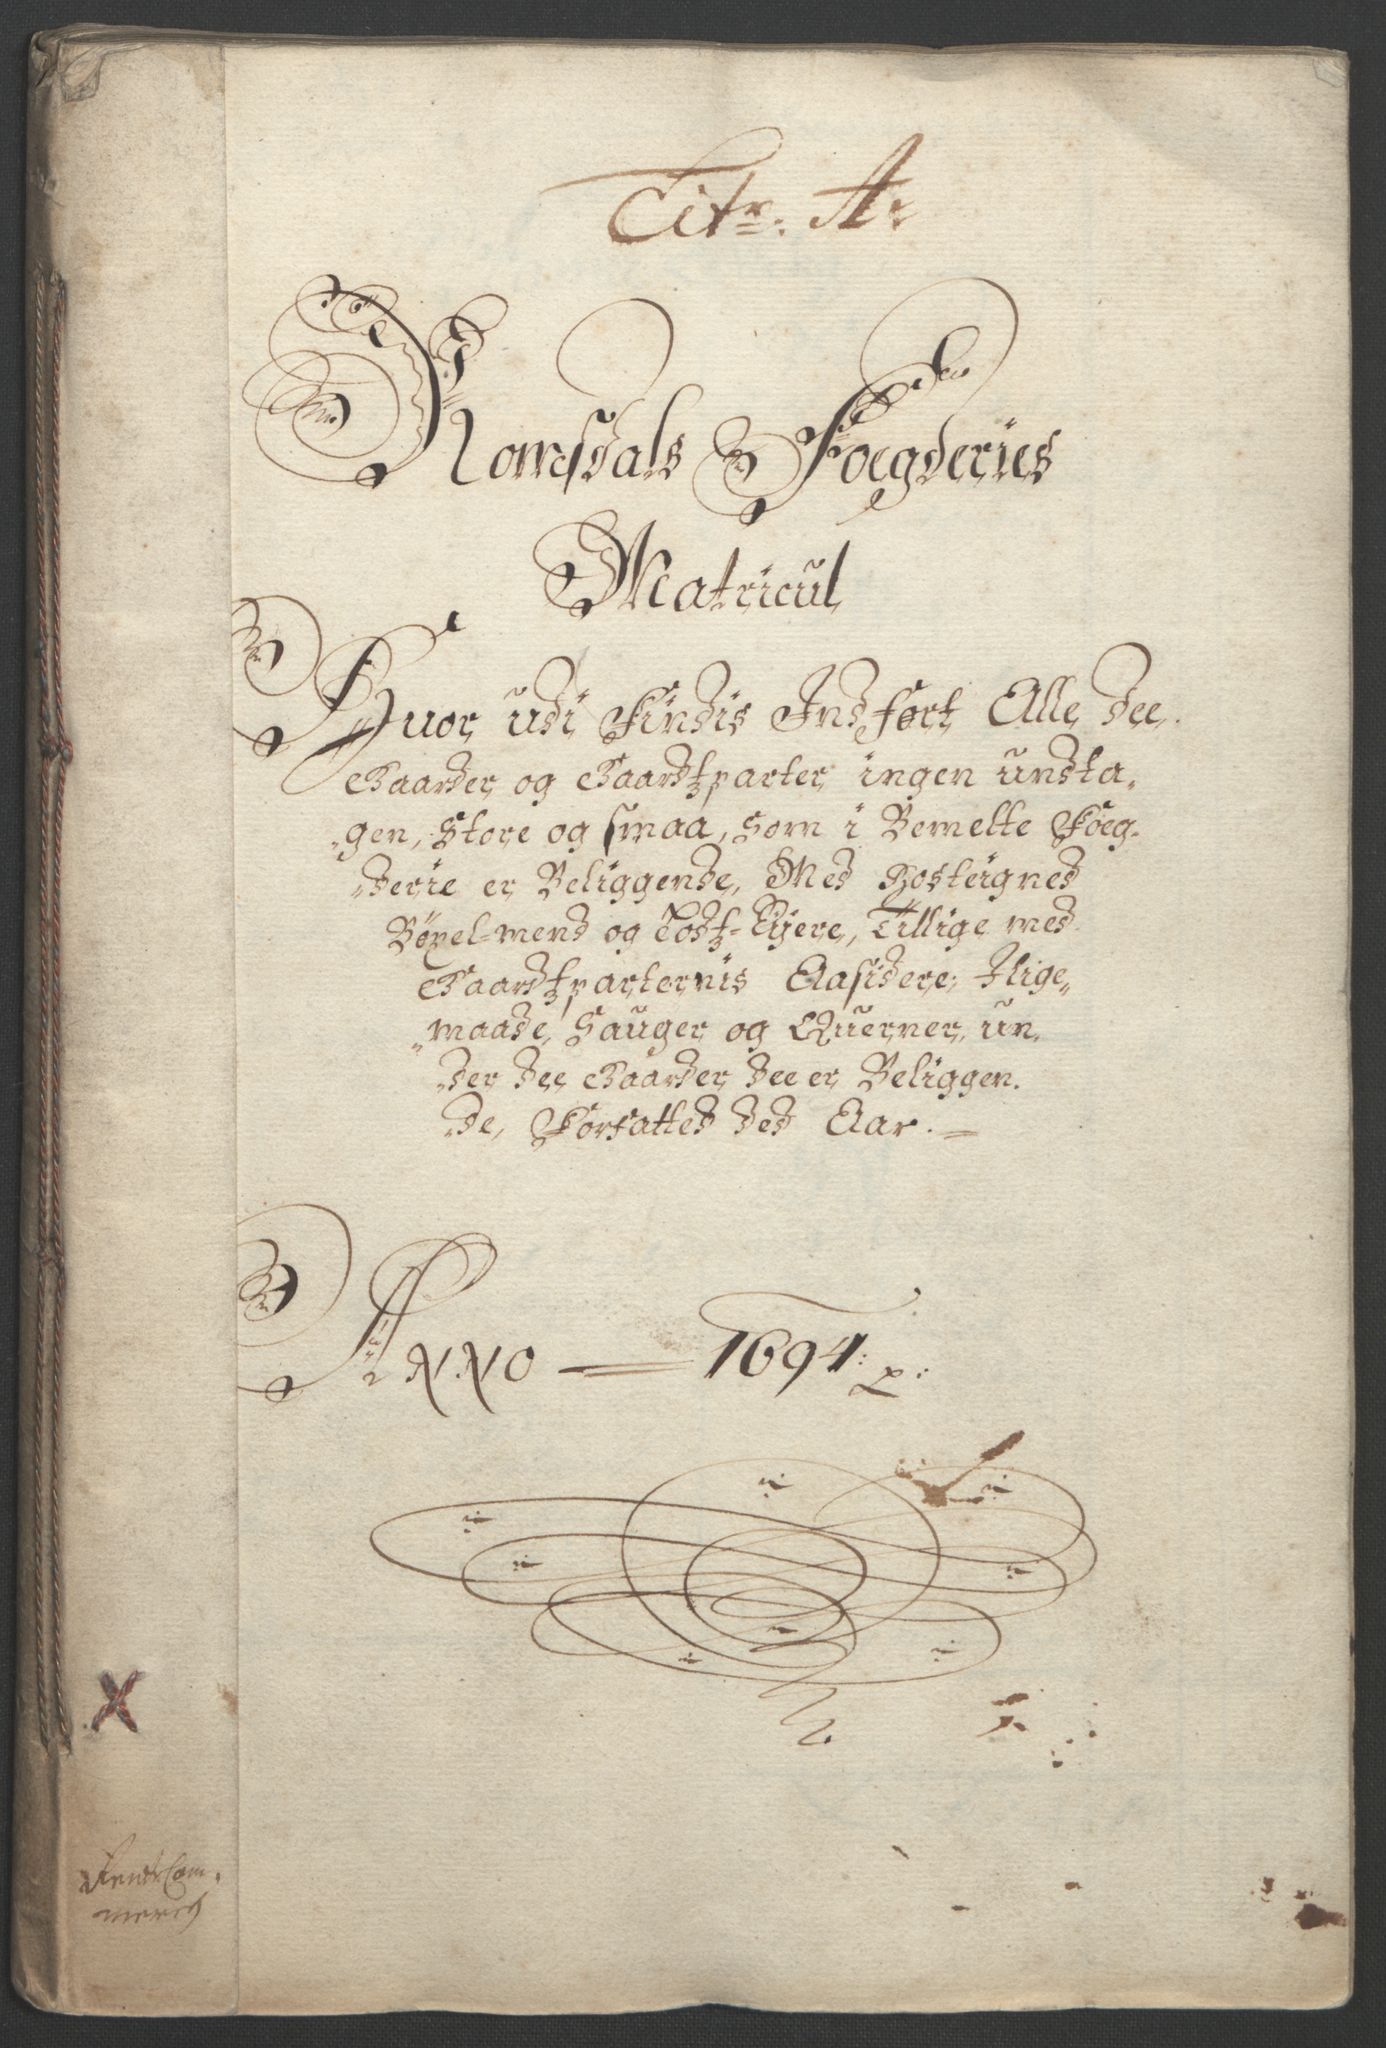 Litr. A.
Romsdals Foegderies
Matricul
Huor udi Findis Indført Alle dee
Gaarder og Gaardzparter ingen undta-
gen, Store og smaa, som i Bemelte Foeg-
derie er Beliggende, Med Hosteigned
Bøxel-mend og Lodz-Eyere, Tillige med
Gaardzparternis Aasidere; Ilige-
maade, Sauger og Querner, un-
der dee Gaarder dee er Beliggen-
de, Forfatted ded Aar.
Anno 1694:
RenteCam-
meret